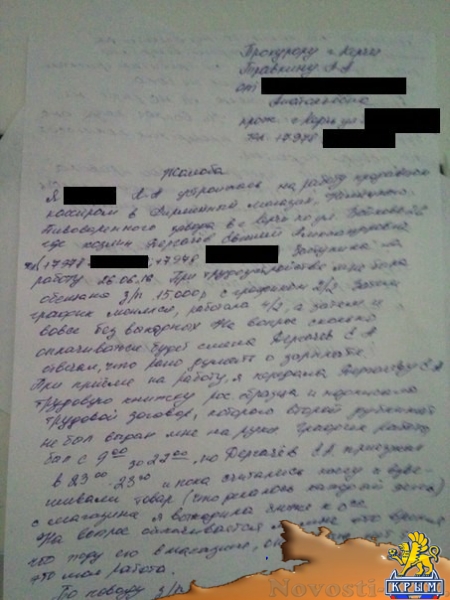 Прокурору г. Керчи
Травкину А.А
от
Анатольевна
прож. г. Керчь ул
тел. +7978
Жалоба
Я А.А устроилась на работу продавцом
кассиром в Фирменный магазин
Пивоваренного завода в г. Керчь по ул. Войкова
где хозяин Дергачёв Евгений Александрович
+7978 +7978 Заступила на
работу 26.06.16 При трудоустройстве мне было
обещано з/п 15.000 р с графиком 2/2. Затем
график менялся, работала 4/2, а затем и
вовсе без выходных На вопрос сколько
оплачиваться будет смена Дергачев Е.А
отвечал, что рано думать о зарплате.
При приёме на работу, я передала Дергачёву Е.А
трудовую книжку рос. образца и подписала
трудовой договор, которого второй
не был выдан мне на руки График работы
был с 9:00 до 22:00, но Дергачёв Е.А приезжал
в 23:00 - 23:30 и пока считались кассу и взве-
шивали товар (что делалось каждый день)
с магазина я выходила ближе к
На вопрос оплачивается ли мне это время
что
что моя работа.
По поводу з/п
Novosti-
КРЫМ